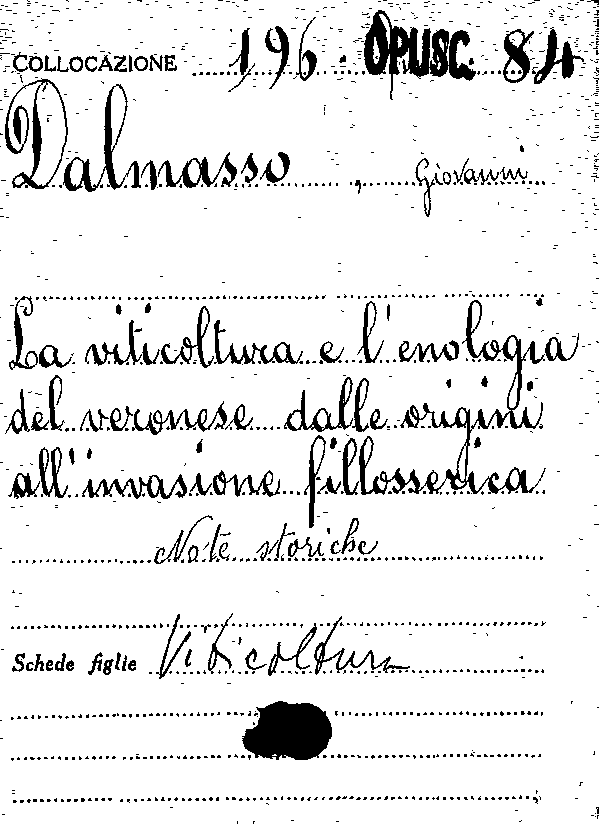 COLLOCAZIONE 196. OPUSC. 84
Dalmasso, Giovanni
La viticoltura e l'enologia
del veronese dalle origini
all'invasione fillosserica
Note storiche
Schede figlie Viticoltura